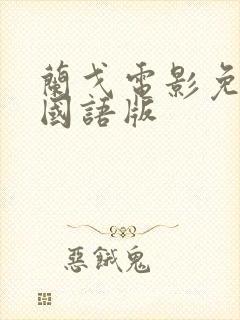 蘭戈電影免
國語版
惡餓鬼